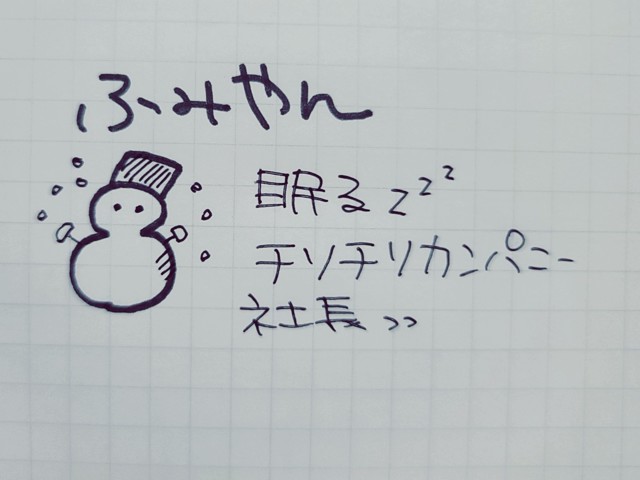 ふみやん
眠るzzz
チリチリカンパニー
社長>>